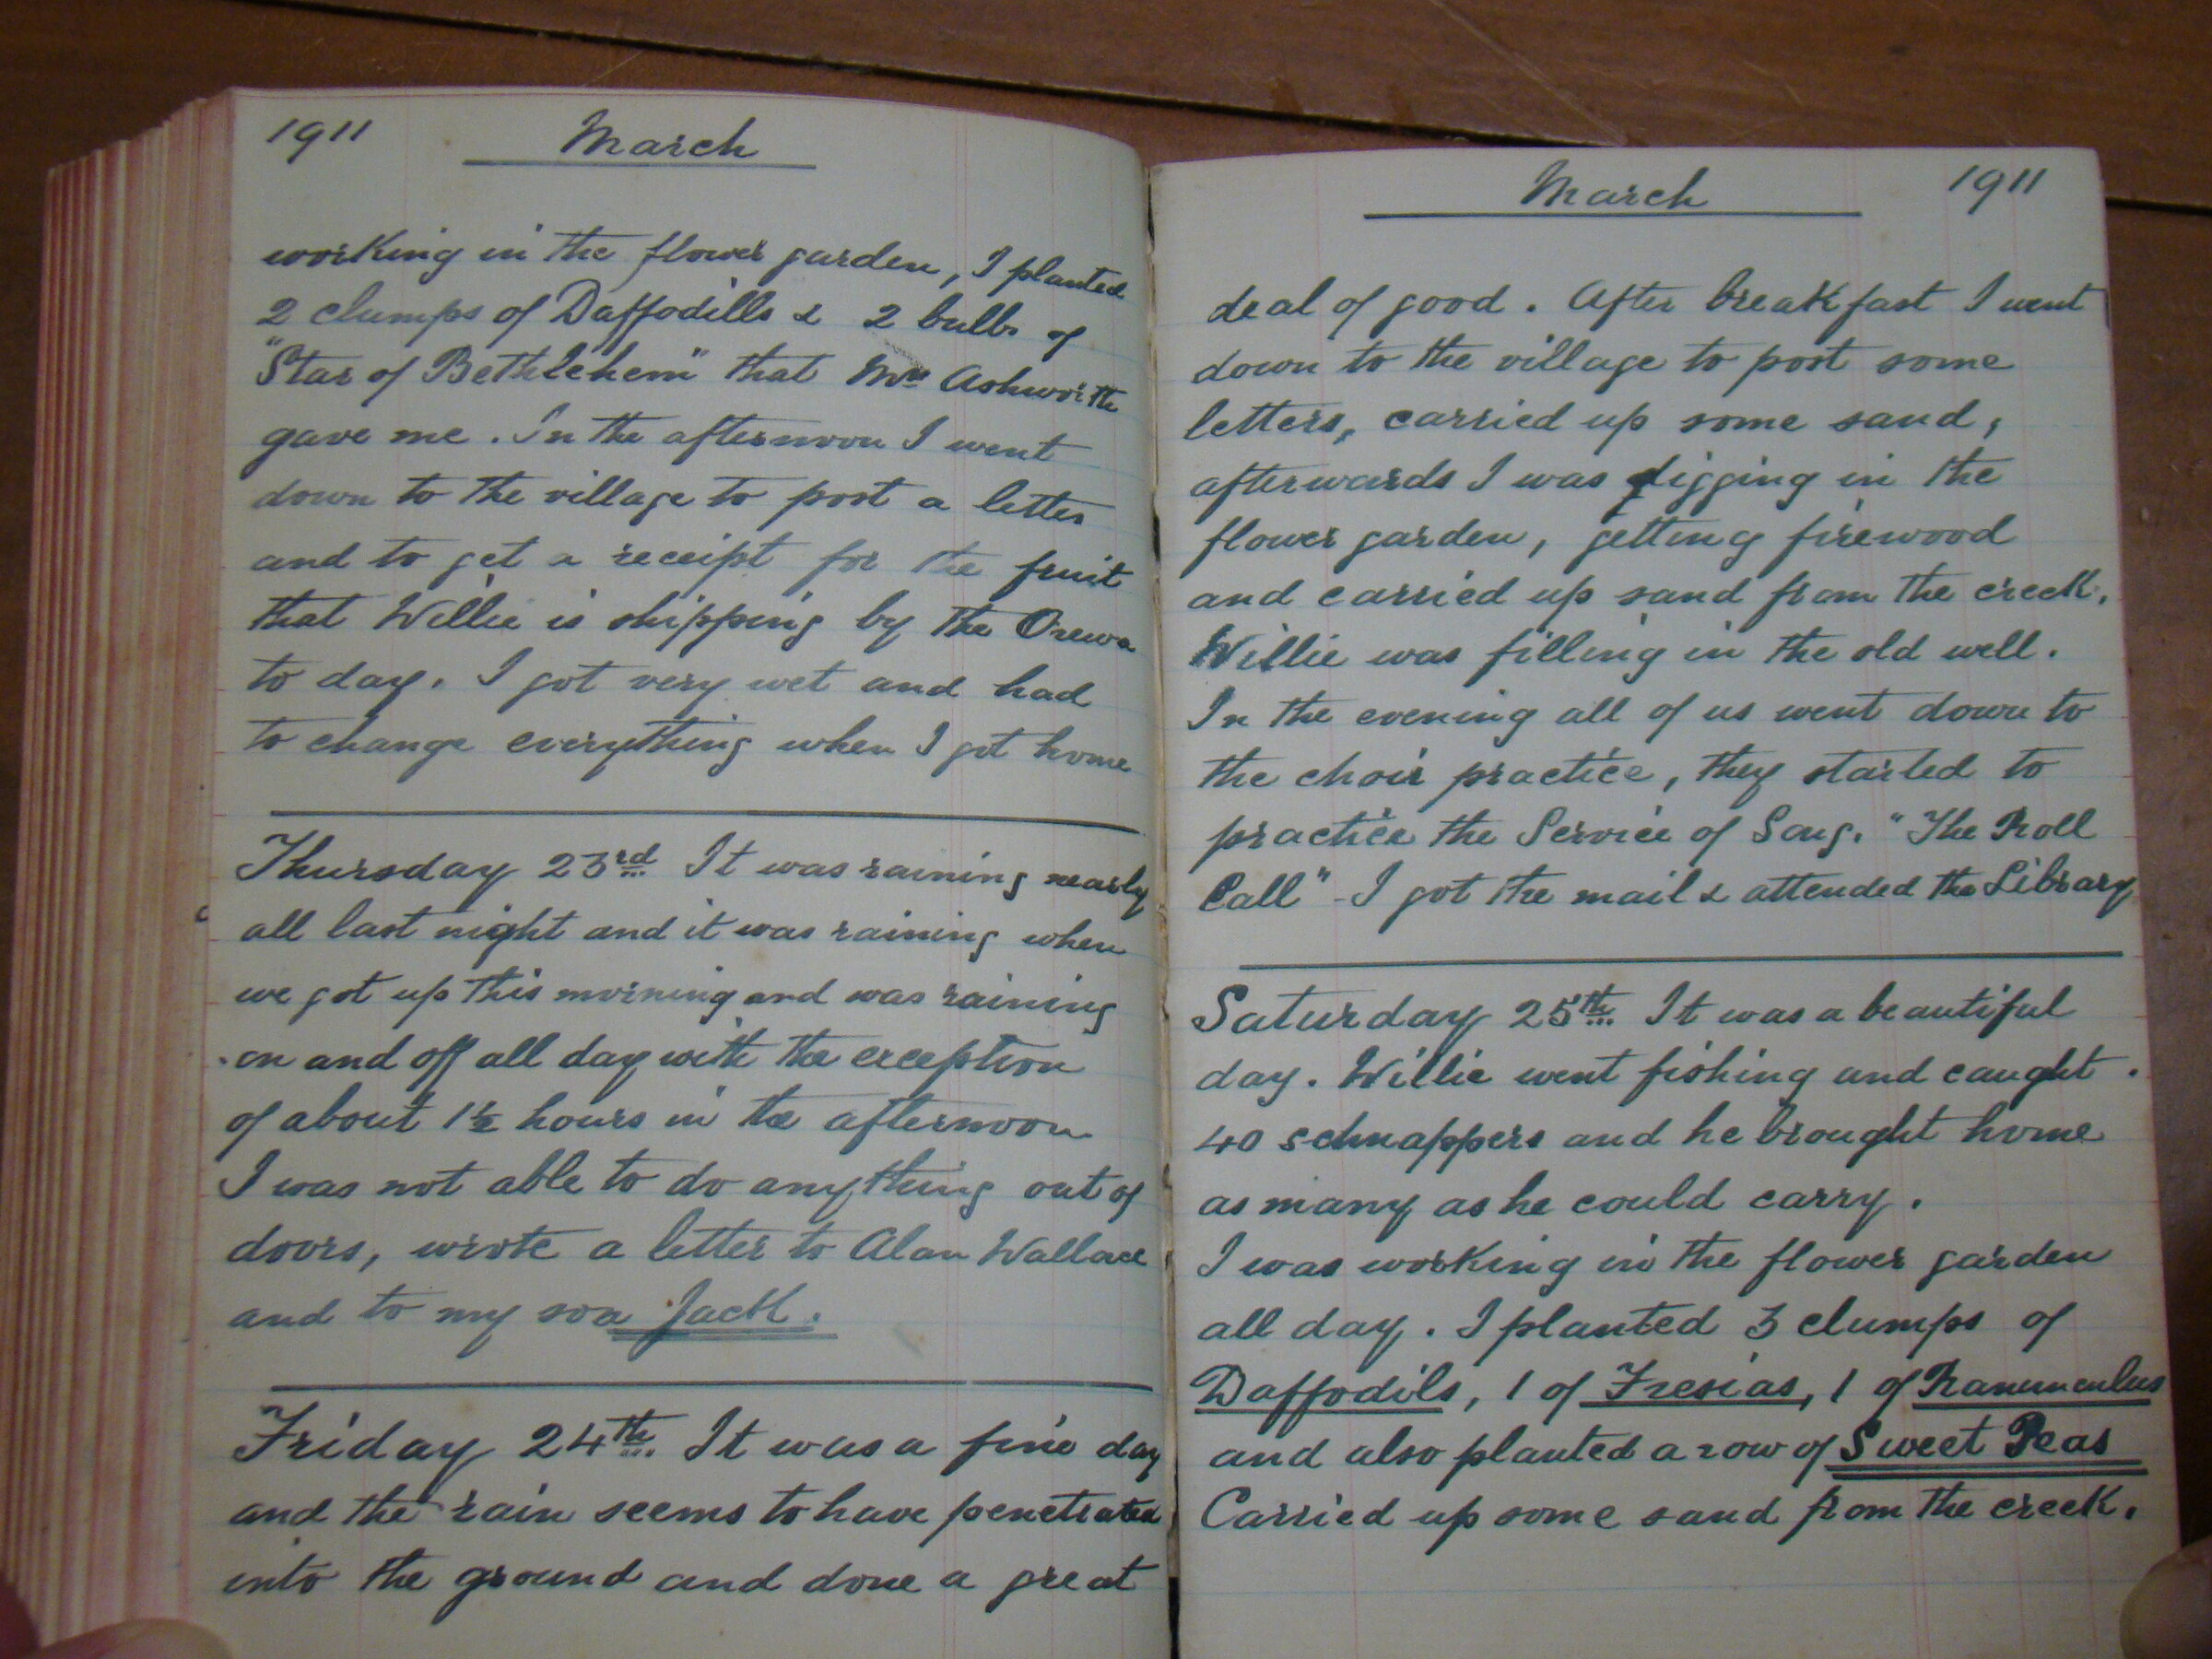 1911 March
working in the flower garden, I planted
2 clumps of Daffodills & 2 bulbs of
"Star of Bethlehem" that Mrs Ashworth
gave me. In the afternoon I went
down to the village to post a letter
and to get a receipt for the fruit
that Willie is shipping by the Orewa
to day. I got very wet and had
to change everything when I got home
Thursday 23rd It was raining nearly
all last night and it was raining when
we got up this morning and was raining
on and off all day with the exception
of about 1½ hours in the afternoon
I was not able to do anything out of
doors, wrote a letter to Alan Wallace
and to my son Jack.
Friday 24th It was a fine day
and the rain seems to have penetrated
into the ground and done a great
March 1911
deal of good. After breakfast I went
down to the village to post some
letters, carried up some sand,
afterwards I was digging in the
flower garden, getting firewood
and carried up sand from the creek.
Willie was filling in the old well.
In the evening all of us went down to
the choir practice, they started to
practice the Service of Song. "The Roll
Call" - I got the mail & attended the Library
Saturday 25th It was a beautiful
day. Willie went fishing and caught
40 schnappers and he brought home
as many as he could carry.
I was working in the flower garden
all day. I planted 3 clumps of
Daffodils, 1 of Fresias, 1 of Ranunculus
and also planted a row of Sweet Peas
Carried up some sand from the creek.